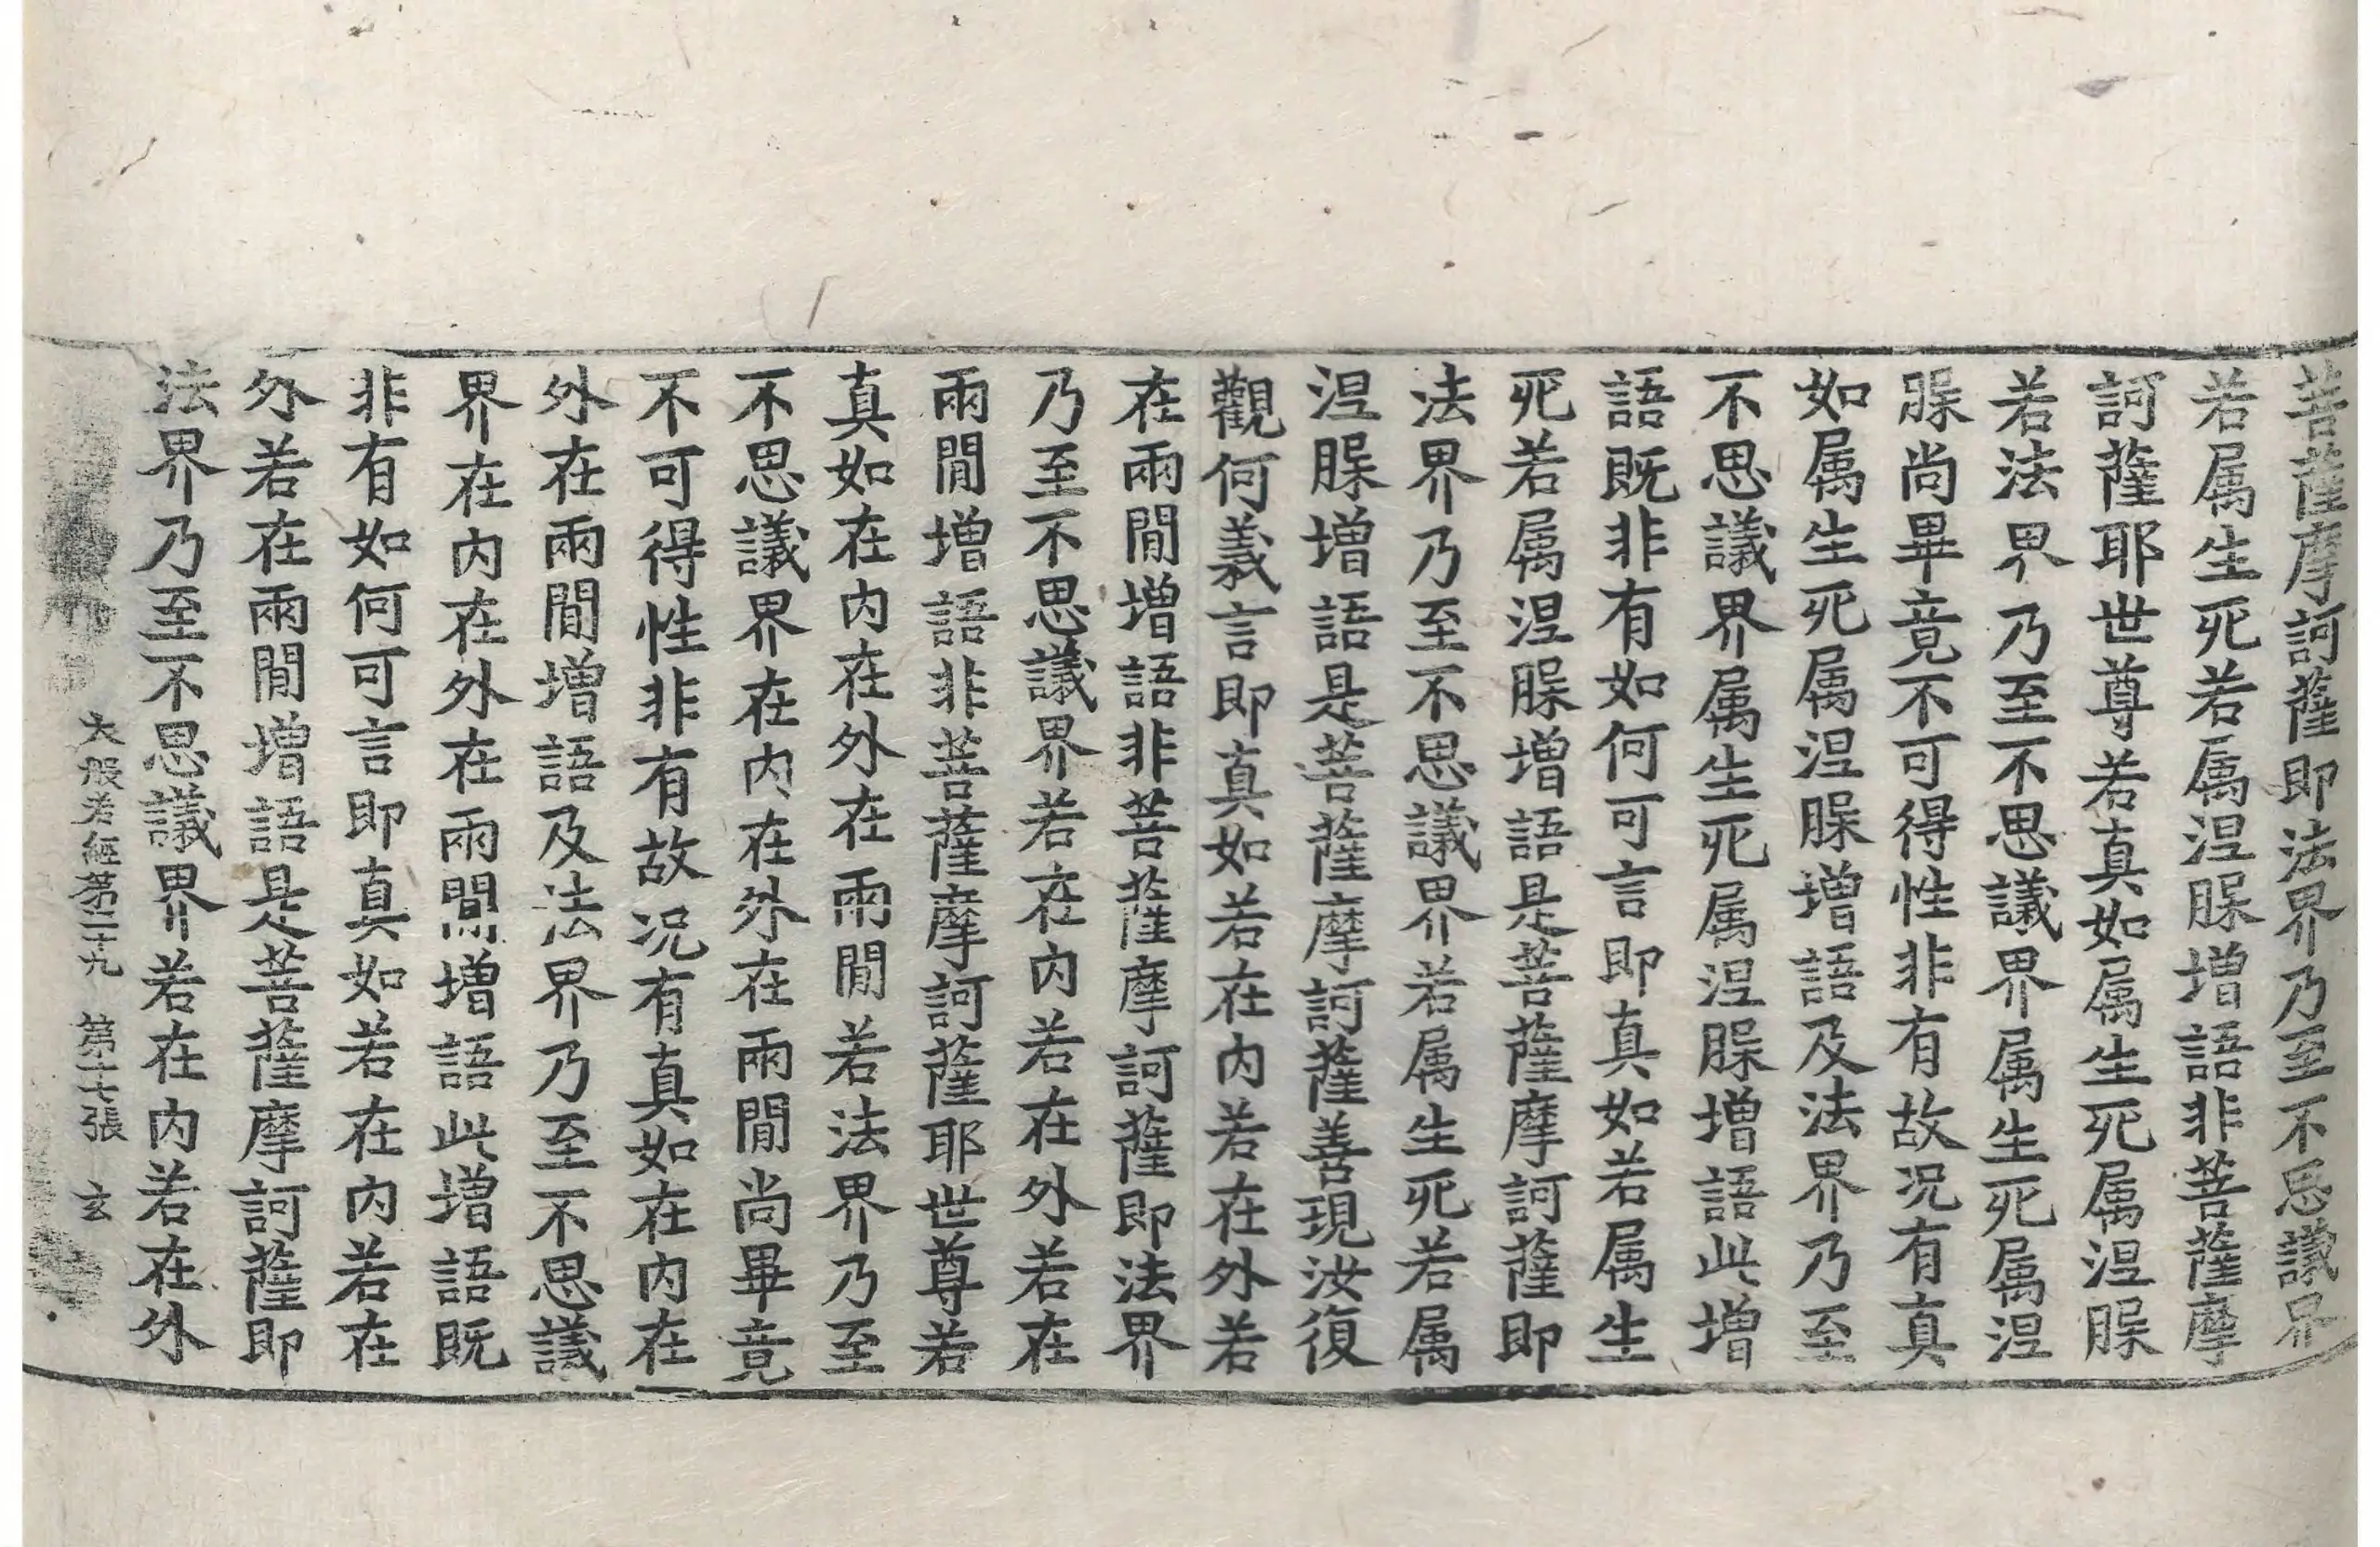 菩薩摩訶薩即法界乃至不思議界
若属生死若属涅槃增語非菩薩摩
訶薩耶世尊若真如属生死属涅槃
若法界乃至不思議界属生死属涅
槃尚畢竟不可得性非有故况有真
如属生死属涅槃增語及法界乃至
不思議界属生死属涅槃增語此增
語既非有如何可言即真如若属生
死若属涅槃增語是菩薩摩訶薩即
法界乃至不思議界若属生死若属
涅槃增語是菩薩摩訶薩善現汝復
觀何義言即真如若在内若在外若
在兩閒增語非菩薩摩訶薩即法界
乃至不思議界若在内若在外若在
兩閒增語非菩薩摩訶薩耶世尊若
真如在内在外在兩閒若法界乃至
不思議界在内在外在兩閒尚畢竟
不可得性非有故况有真如在内在
外在兩閒增語及法界乃至不思議
界在内在外在兩閒增語此增語既
非有如何可言即真如若在内若在
外若在兩閒增語是菩薩摩訶薩即
法界乃至不思議界若在内若在外
大般若經第二十九 第十七張 玄